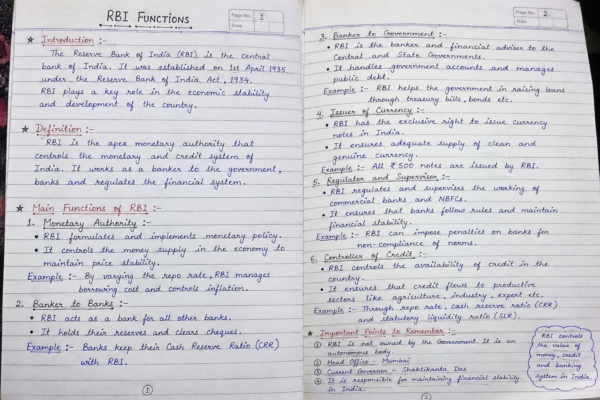 RBI FUNCTIONS
Page No. 1
Date
★ Introduction :-
The Reserve Bank of India (RBI) is the central
bank of India. It was established on 1st April 1935
under the Reserve Bank of India Act, 1934.
RBI plays a key role in the economic stability
and development of the country.
★ Definition :-
RBI is the apex monetary authority that
controls the monetary and credit system of
India. It works as a banker to the government,
banks and regulates the financial system.
★ Main Functions of RBI :-
1. Monetary Authority :-
• RBI formulates and implements monetary policy.
• It controls the money supply in the economy to
maintain price stability.
Example :- By varying the repo rate, RBI manages
borrowing cost and controls inflation.
2. Banker to Banks :-
• RBI acts as a bank for all other banks.
• It holds their reserves and clears cheques.
Example :- Banks keep their Cash Reserve Ratio (CRR)
with RBI.
①
Page No. 2
Date
3. Banker to Government :-
• RBI is the banker and financial adviser to the
Central and State Governments.
• It handles government accounts and manages
public debt.
Example :- RBI helps the government in raising loans
through treasury bills, bonds etc.
4. Issuer of Currency :-
• RBI has the exclusive right to issue currency
notes in India.
• It ensures adequate supply of clean and
genuine currency.
Example :- All ₹500 notes are issued by RBI.
5. Regulator and Supervisor :-
• RBI regulates and supervises the working of
commercial banks and NBFCs.
• It ensures that banks follow rules and maintain
financial stability.
Example :- RBI can impose penalties on banks for
non-compliance of norms.
6. Controller of Credit :-
• RBI controls the availability of credit in the
country.
• It ensures that credit flows to productive
sectors like agriculture, industry, export etc.
Example :- Through repo rate, cash reserve ratio (CRR)
and statutory liquidity ratio (SLR)
★ Important Points to Remember :-
① RBI is not owned by the Government. It is an
autonomous body.
② Head Office - Mumbai
③ Current Governor - Shaktikanta Das
④ It is responsible for maintaining financial stability
in India.
RBI controls
the value of
money, credit
and banking
system in India.
②